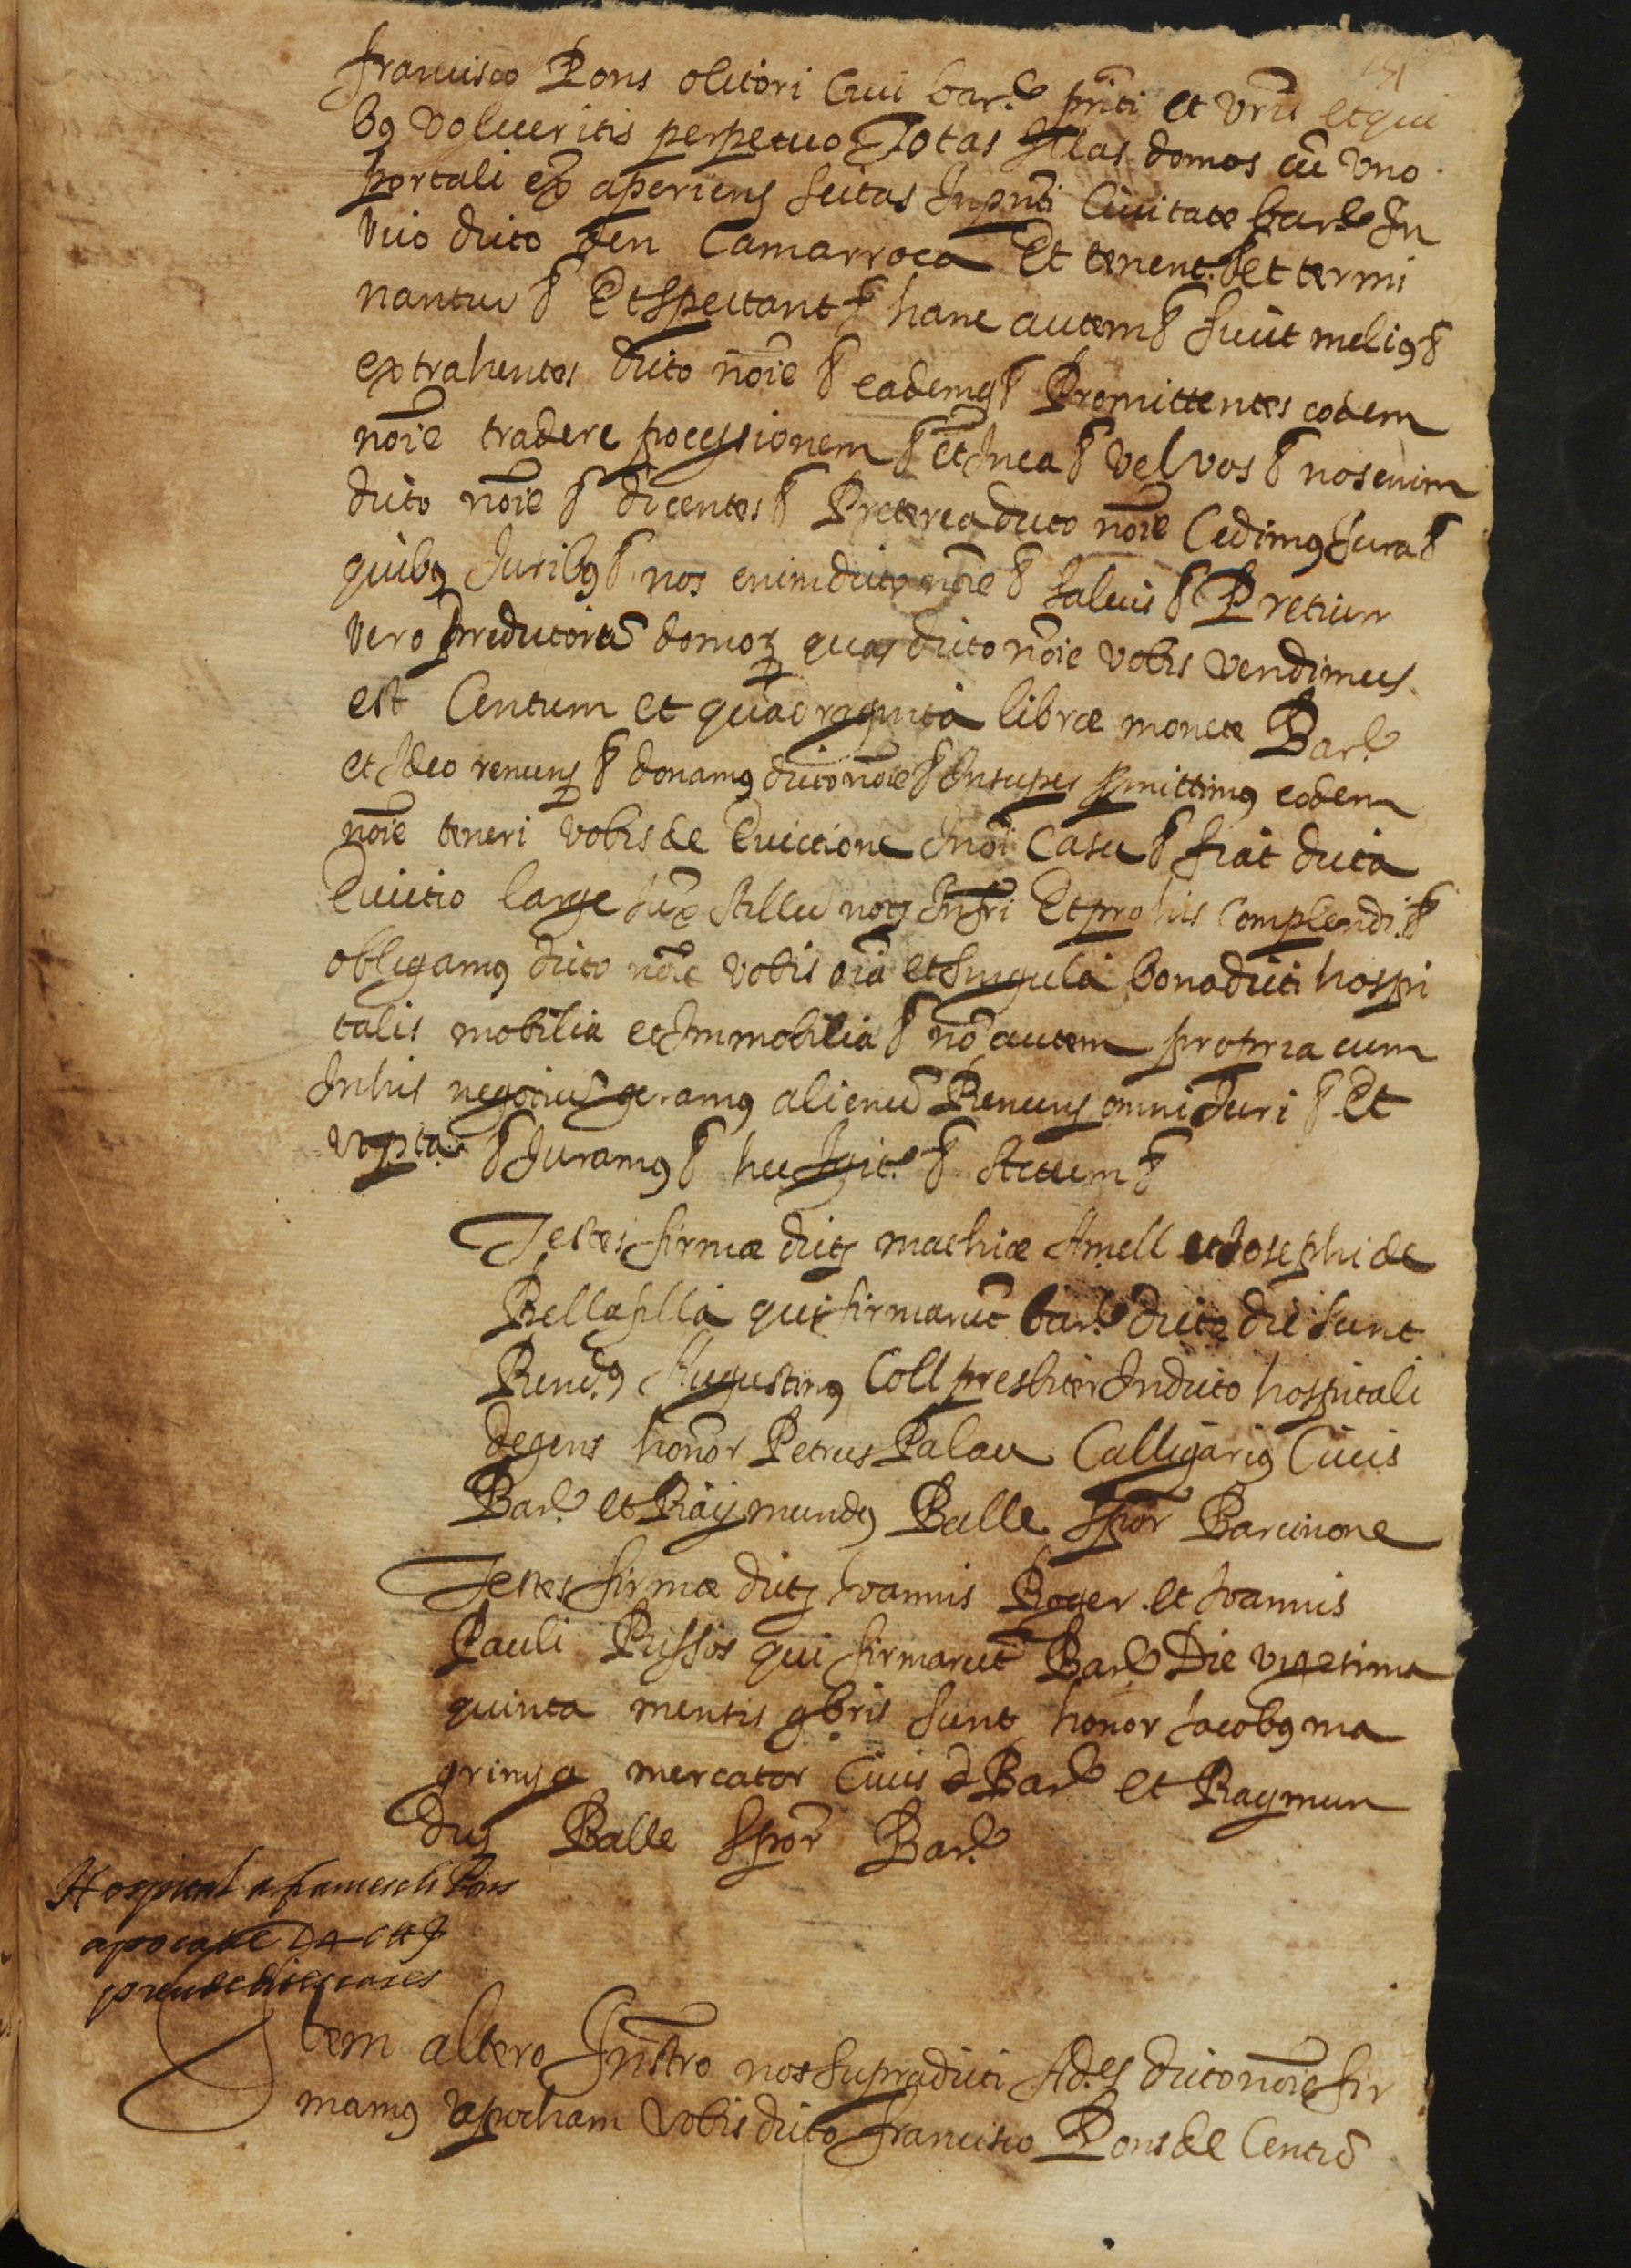 francisco Pons olitori Civi bar.ᵉ pn̄ti et vr̄is et qui
bꝰ volueritis perpetuo Totas Illas domos cū uno
portali exᵃ aperienꝭ scitas In pn̄ti Civitate barᵉ In
vico dicto den Camarroca Et tenent.ʳ & et termi
nantur & Et spectant & hanc autem & sicut meliꝰ &
extrahentes dicto nōīe & eademqꝫ & Promittentes eodem
nōīe tradere pocessionem & et In ea & vel vos & nos enim
dicto nōīe & dicentes & Preterea dicto nōīe Cedimꝰ Jura &
quibꝰ Juribꝰ & nos enim dicto nōīe & salvis & Pretium
vero predictorū domoꝝ quas dicto nōīe vobis vendimus
est Centum et quadraginta librae monete Barᵉ
et Ideo renunꝭ & donamꝰ dicto nōīe & Insuper ꝓmittimꝰ eodem
nōīe teneri vobis de Evictione In ōī Casu & fiat dicta
Evictio large Jux̄ᵃ stillū notꝭ Infr̄i Et pro his Complendi.ˢ &
obligamꝰ dicto nōīe vobis oīā et singula bona dicti hospi
talis mobilia et Immobilia & nō autem propria cum
In his negociū geramꝰ alienū Renunꝭ omni Juri & Et
ut pᵗᵃ & Juramꝰ & hec Igit.ʳ & Actum &
Testes firmæ dictꝭ mathiæ Amell et Josephi de
Bellafilla qui firmarūt barᵉ dicto die sunt
Rend.ꝰ Augustinꝰ Coll presbiter In dicto hospitali
degens honor̄ Petrus Palau Calligariꝰ Civis
Barᵉ et Raymundꝰ Balle sp̄or Barcinone
Testes firmæ dictꝭ Joannis Roger et Joannis
Pauli Rissos qui firmarūt Barᵉ Die vigesima
quinta mensis 9bris sunt honor̄ Jacobꝰ ma
grinya mercator Civis Barᵉ et Raymun
dus Balle sp̄or Barᵉ
Hospital a francesch Pons
apoca de
preu de dites cases
Item altero Instr̄o nos supradicti Ad.ᵉˢ dicto nōīe fir
mamꝰ apocham vobis dicto francisco Pons de Centū